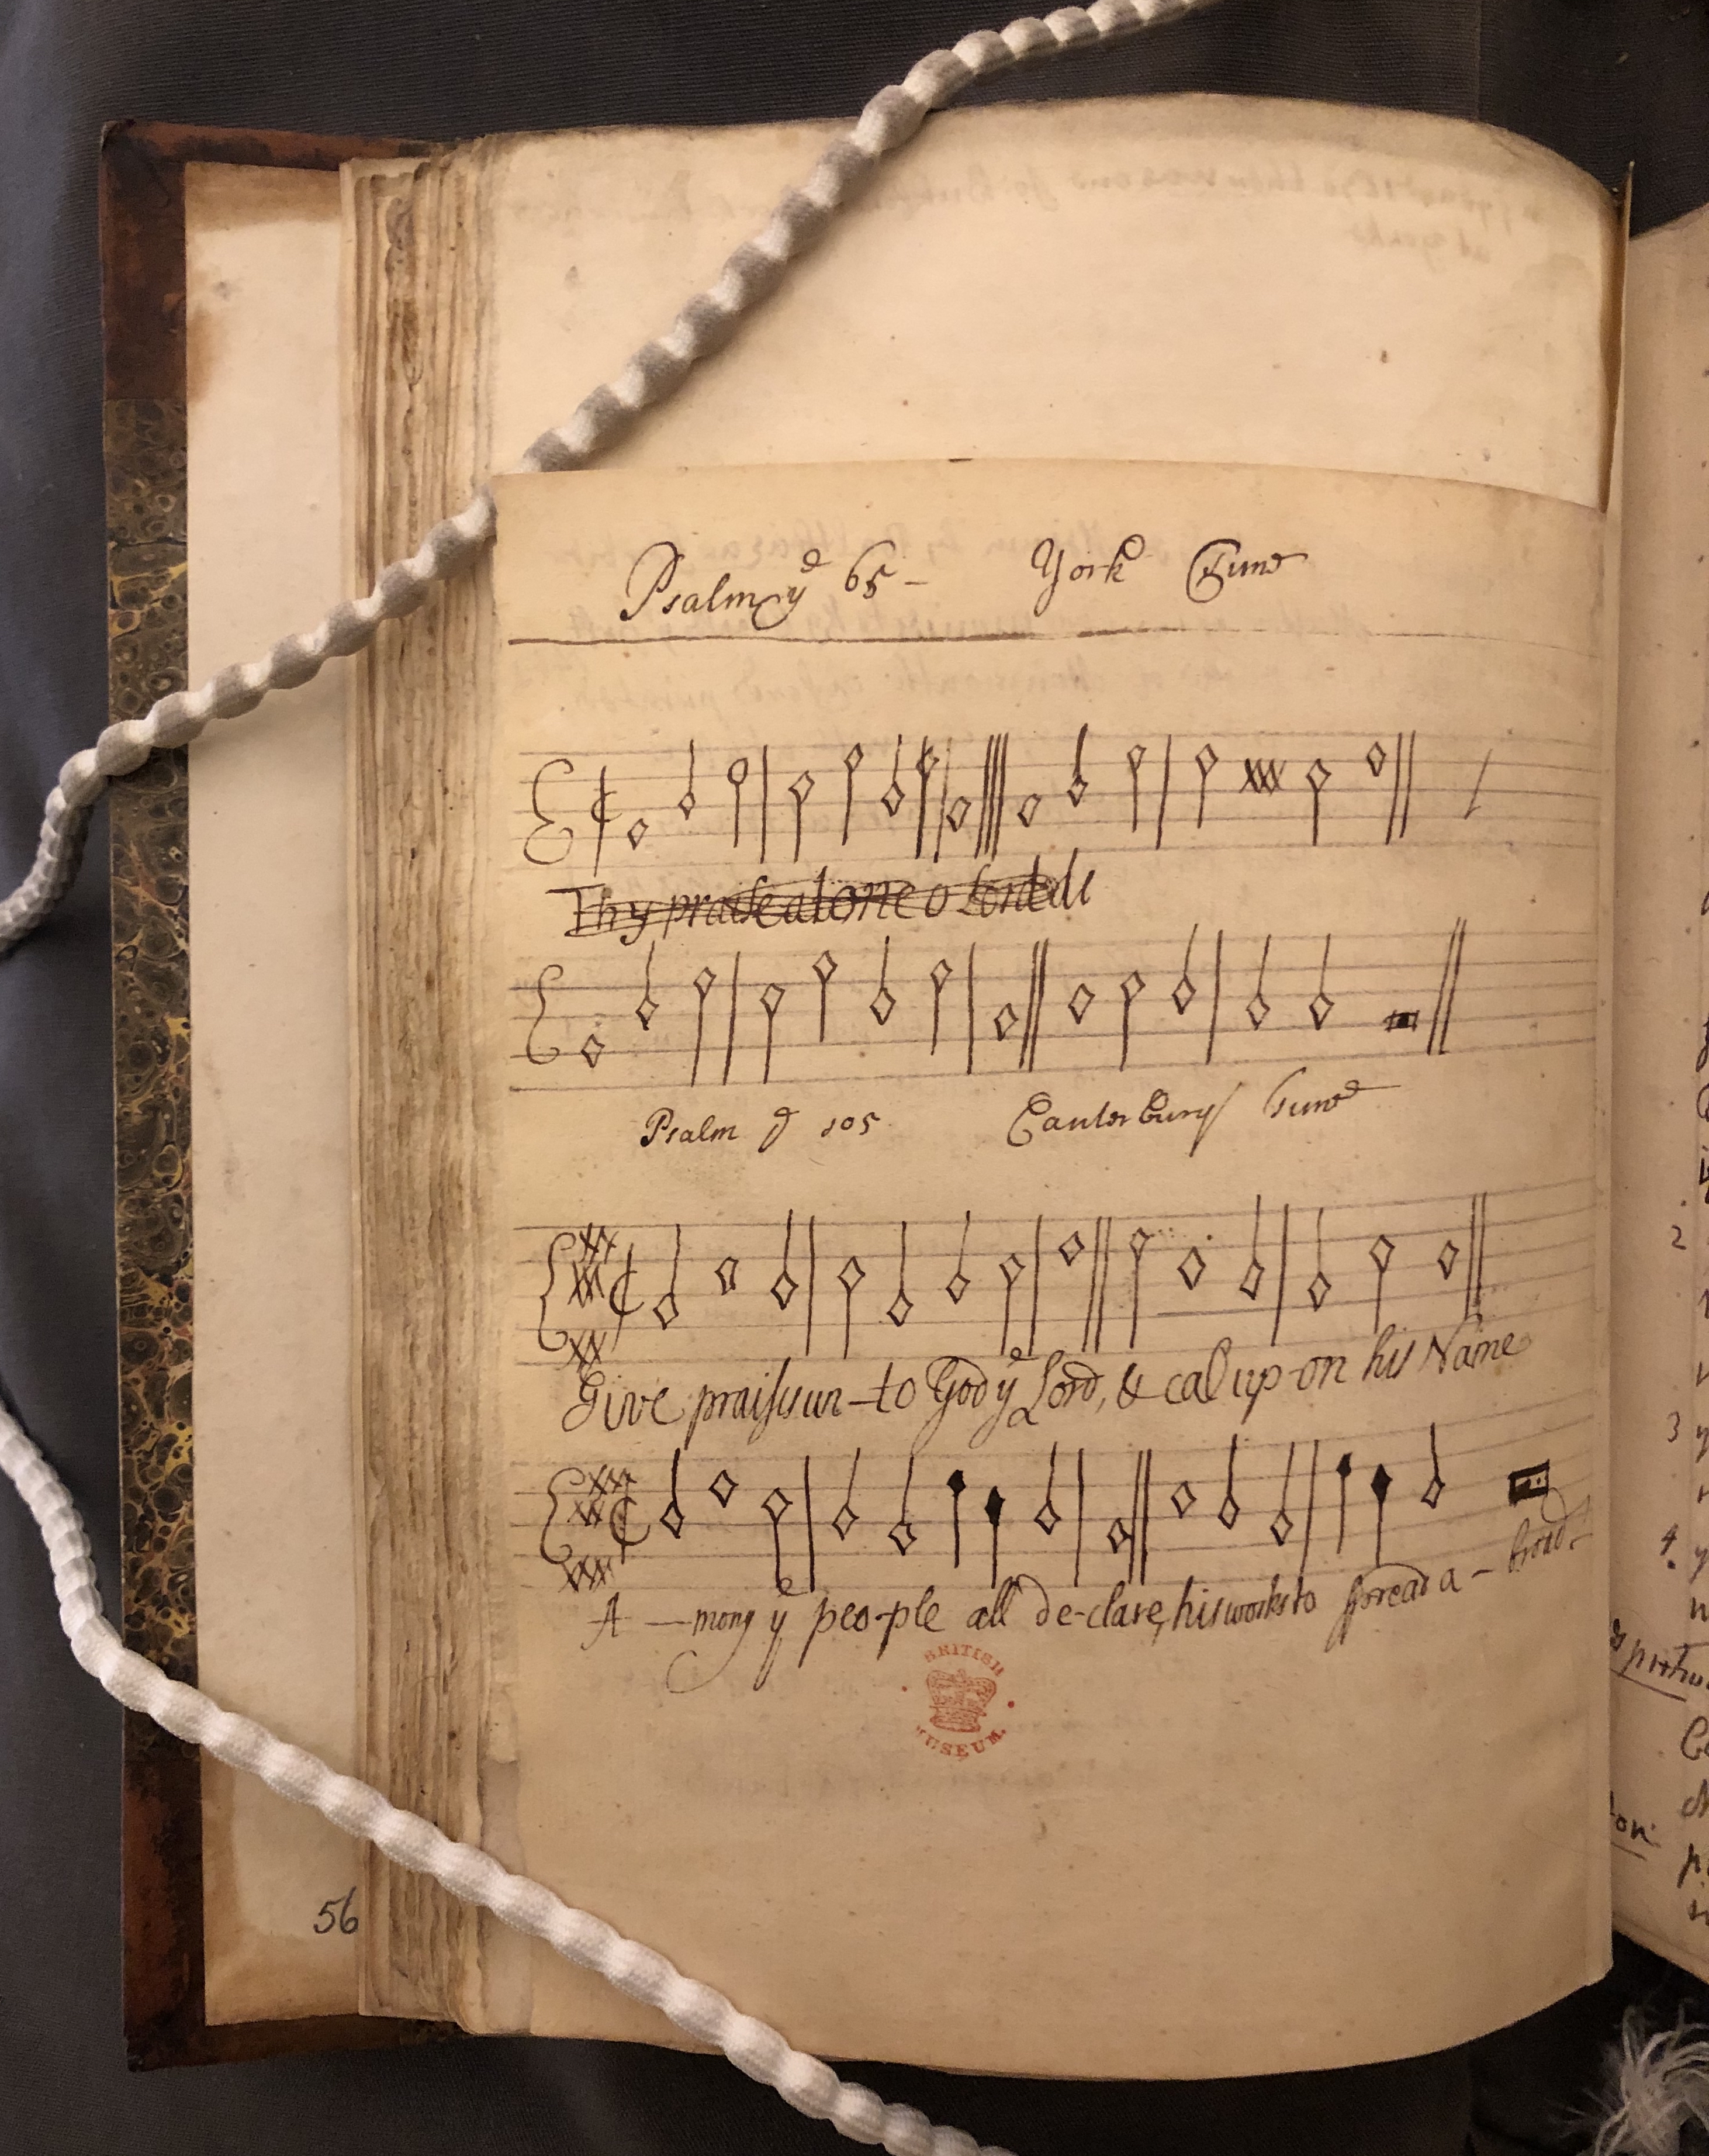 Psalm yᵉ 65 - York Tune
Thy praise alone o Lord
Psalm yᵉ 105 Canterbury Tune
Give praises un-to God yᵉ Lord, & cal up-on his Name
A-mong yᵉ peo-ple all de-clare, his works to spread a-broad.
BRITISH
MUSEUM
56
2
3 y
4. y